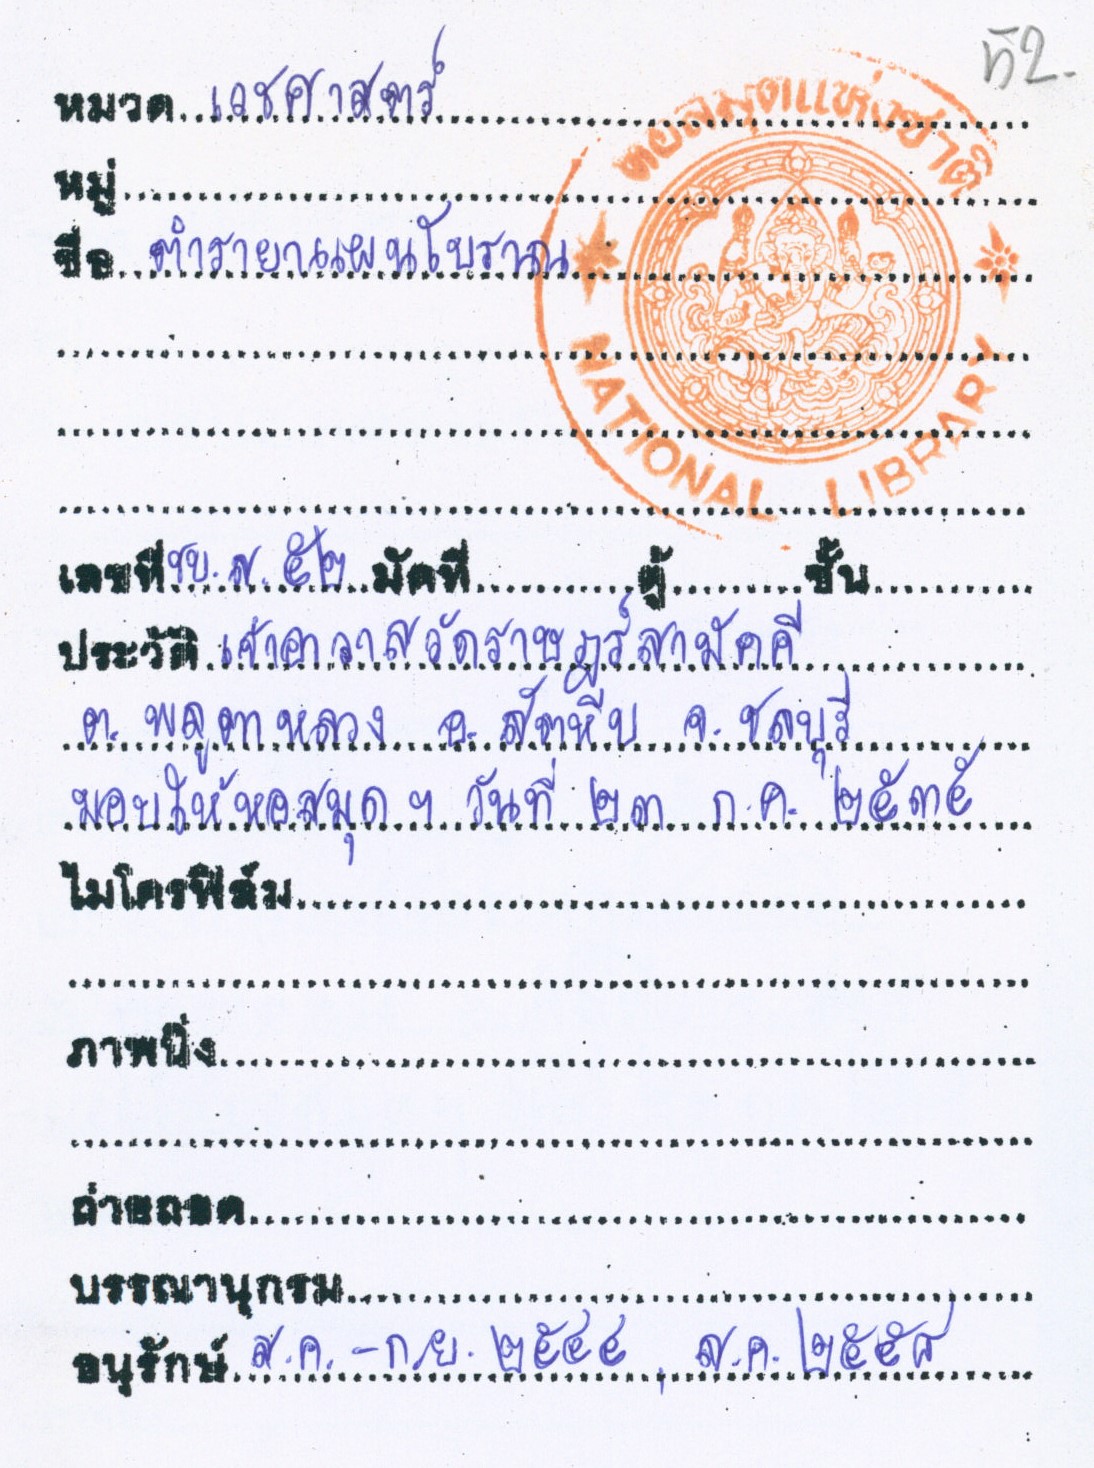 ที่ ๒.
หมวด เวชศาสตร์
หอสมุดแห่งชาติ
หมู่
ชื่อ ตำรายาแผนโบราณ
NATIONAL LIBRARY
เลขที่ ชบ.ส. ๕๒ มัดที่ ตู้ ชั้น
ประวัติ เจ้าอาวาสวัดราษฎร์สามัคคี
ต. พลูตาหลวง อ. สัตหีบ จ. ชลบุรี
มอบให้หอสมุดฯ วันที่ ๒๓ ก.ค. ๒๕๓๕
ไมโครฟิล์ม
ภาพนิ่ง
ถ่ายถอด
บรรณานุกรม
อนุรักษ์ ส.ค. - ก.ย. ๒๕๔๔, ส.ค. ๒๕๕๘